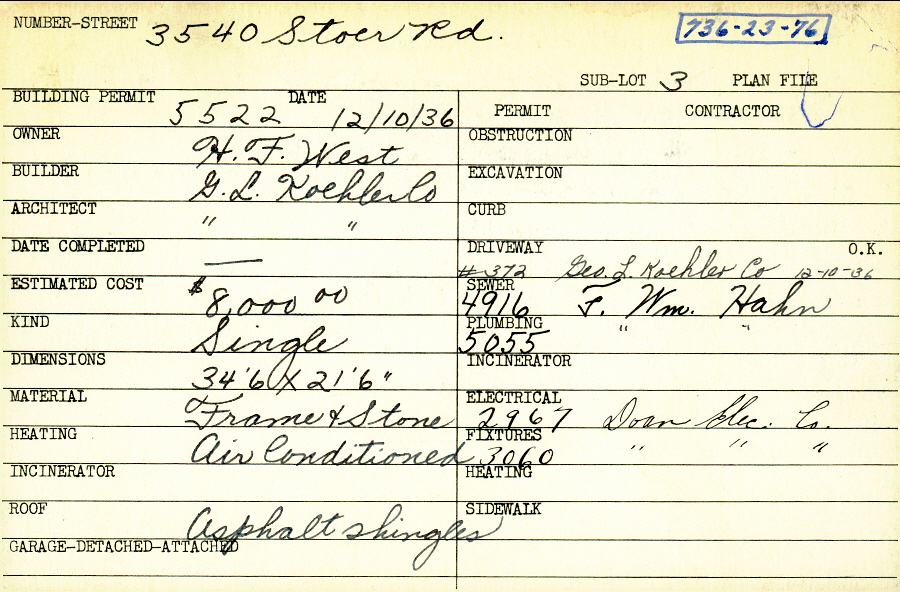 NUMBER-STREET 3540 Stoer Rd. 736-23-76
SUB-LOT 3 PLAN FILE
BUILDING PERMIT 5522 DATE 12/10/36
OWNER H. F. West
BUILDER G. L. Koehler Co
ARCHITECT " "
DATE COMPLETED —
ESTIMATED COST $8,000 00
KIND Single
DIMENSIONS 34'6 X 21'6"
MATERIAL Frame & Stone
HEATING Air Conditioned
INCINERATOR
ROOF Asphalt shingles
GARAGE-DETACHED-ATTACHED
PERMIT CONTRACTOR
OBSTRUCTION
EXCAVATION
CURB
DRIVEWAY O.K.
# 372 Geo. L. Koehler Co 12-10-36
SEWER
4916 F. Wm. Hahn
PLUMBING
5055 " "
INCINERATOR
ELECTRICAL
2967 Doan Elec. Co.
FIXTURES
3060 " " "
HEATING
SIDEWALK